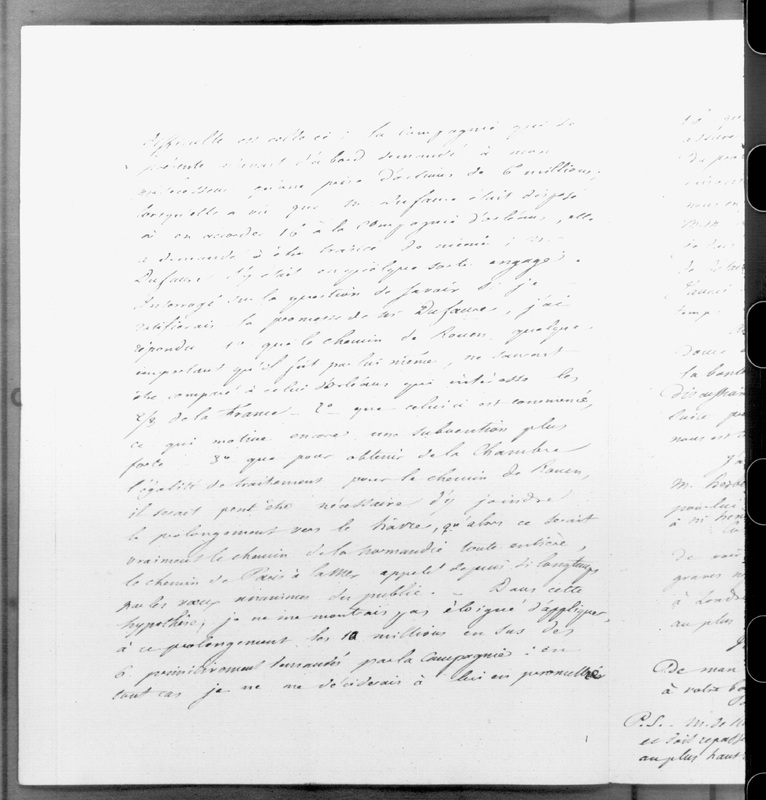 difficulté est celle ci : la Compagnie qui se
présente n'avait d'abord demandé à mon
prédécesseur qu'une prise d'actions de 6 millions,
lorsqu'elle a vu que M. Dufaure était disposé
à en accorder 16 à la Compagnie d'orléans, elle
a demandé à être traitée de même ; M.
Dufaure s'y était en quelque sorte engagé.
Interrogé sur la question de savoir si je
ratifierais la promesse de Mr Dufaure, j'ai
répondu 1º que le chemin de Rouen, quelque
important qu'il fut par lui même, ne saurait
être comparé à celui d'orléans qui intéresse les
2/3 de la France – 2º que celui ci est commencé,
ce qui motive encore une subvention plus
forte 3º que pour obtenir de la Chambre
l'égalité de traitement pour le chemin de Rouen,
il serait peut être nécessaire d'y joindre
le prolongement vers le hâvre, qu'alors ce serait
vraiment le chemin de la normandie toute entière,
le chemin de Paris à la Mer appelé depuis si longtemps
par les vœux unanimes du public. – Dans cette
hypothèse, je ne me montrais pas éloigné d'appliquer
à ce prolongement les 10 millions en sus des
6 primitivement demandés par la Compagnie : en
tout cas je ne me déciderais à lui en promettre
du
la
temp
donc
la bont
nous est
M.
pourlui
à
De
graves
à Londre
au plus
De man
à votre bo
P.S. M. de
et doit repass
au plus haut